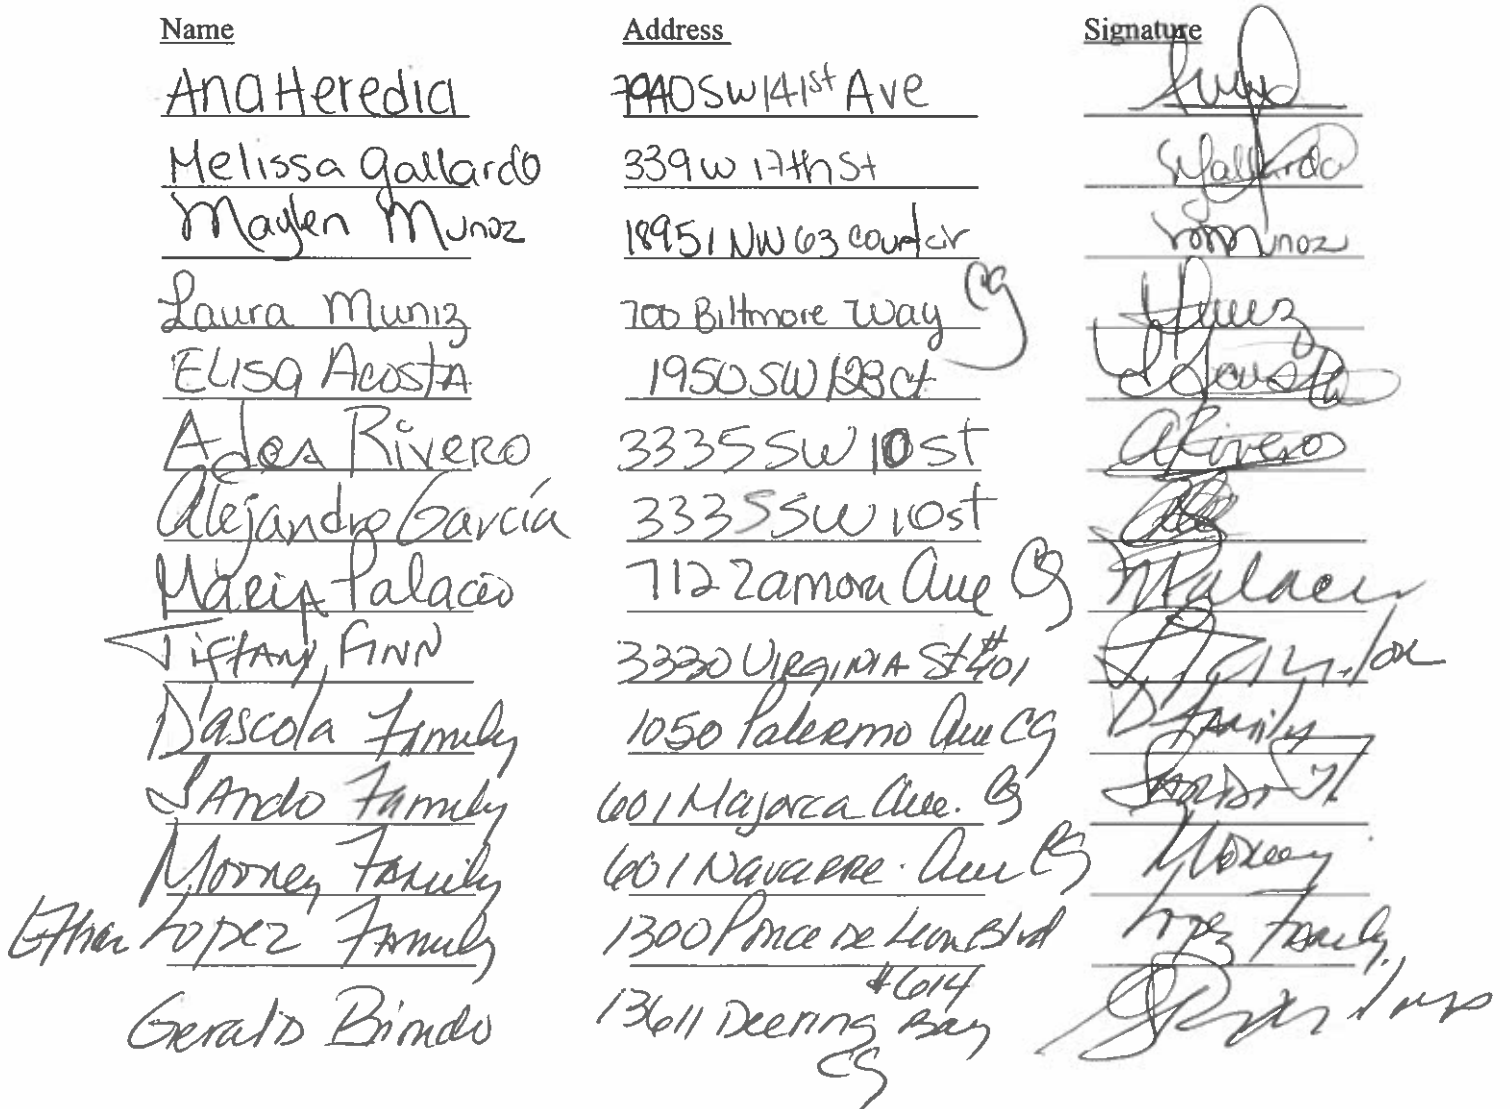 Name Address Signature
Ana Heredia 7940 SW 141st Ave
Melissa Gallardo 339 W 17th St MGallardo
Maylen Munoz 18951 NW 63 Court cir MMunoz
Laura Muniz 700 Biltmore Way CG
Elisa Acosta 1950 SW 128 Ct
Ada Rivero 3335 SW 10 st ARivero
Alejandro García 3335 SW 10 st
Maria Palacio 712 Zamora Ave CG MPalacio
Tiffany Finn 3330 Virginia St #401
D'ascola Family 1050 Palermo Ave CG D Family
Sando Family 601 Majorca Ave. CG
Mooney Family 601 Navarre Ave CG Mooney
Ethan Lopez Family 1300 Ponce De Leon Blvd Lopez Family
#614
Gerald Bimdo 13611 Deering Bay
CG